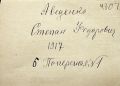 4301
Авдеенко
Степан Федорович
1917
6 Поперечная №1